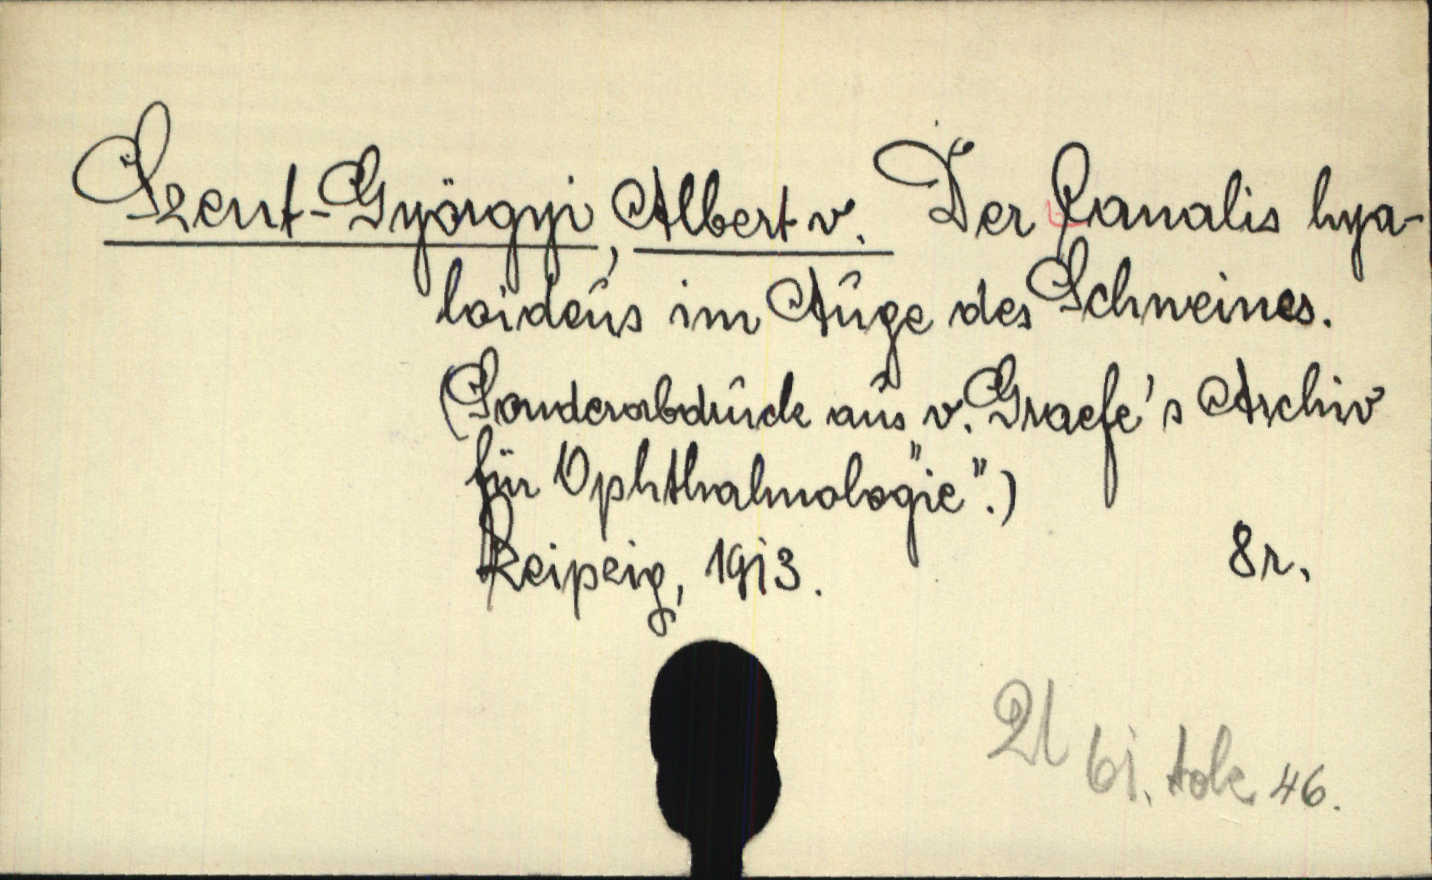 Szent-Györgyi, Albert v. Der Canalis hya-
loideus im Auge des Schweines.
(Sonderabdruck aus v. Graefe's Archiv
für Ophthalmologie".)
Leipzig, 1913. 8r.
46.